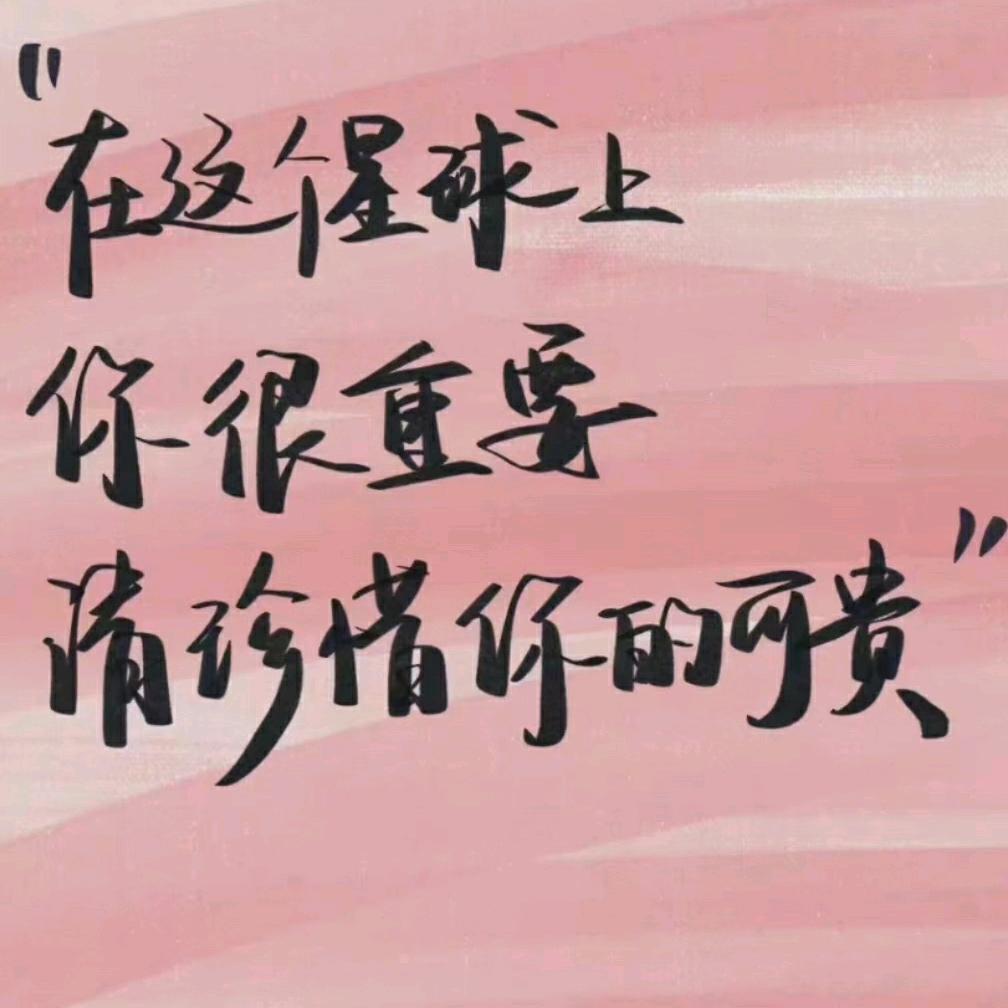 "在这个星球上
你很重要
请珍惜你的可贵"